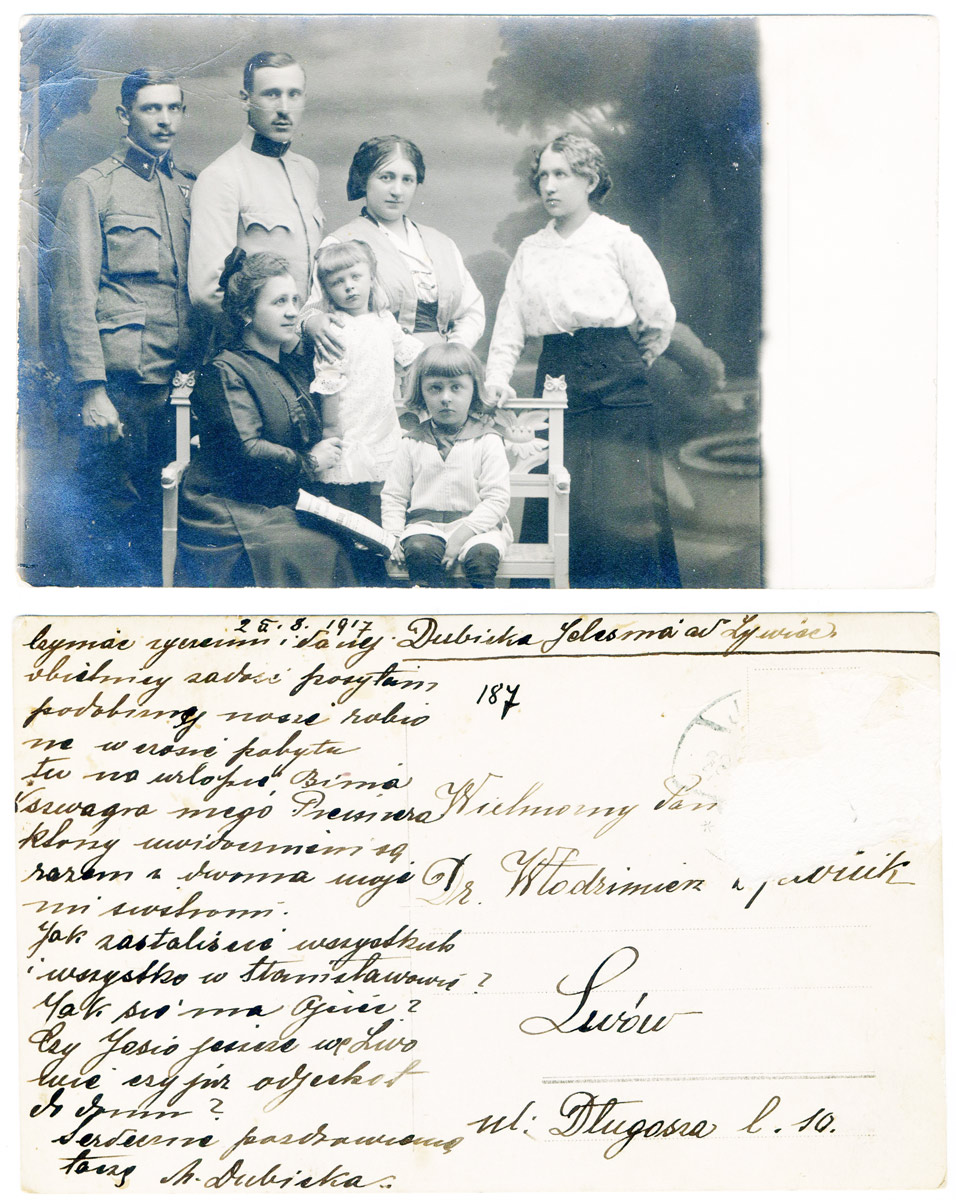 2 8. 1917
Czyniąc życzeniu i danej Dubicka Jeleśnia ad Żywiec
obietnicy zadość posyłam
podobiznę nasze robio
ne w czasie pobytu
tu na urlopie
szwagra mego
którzy uwidocznieni są
razem z dwoma moje
mi siostrami.
Jak zastaliście wszystkich
i wszystko w Stanisławowie?
Jak się ma Ojciec?
Czy Jasio jeszcze we Lwo
wie czy już odjechał
do domu?
Serdeczne pozdrowienia
łączę M. Dubicka.
187
Wielmożny Pan
Dr. Włodzimierz
Lwów
ul: Długosza l. 10.